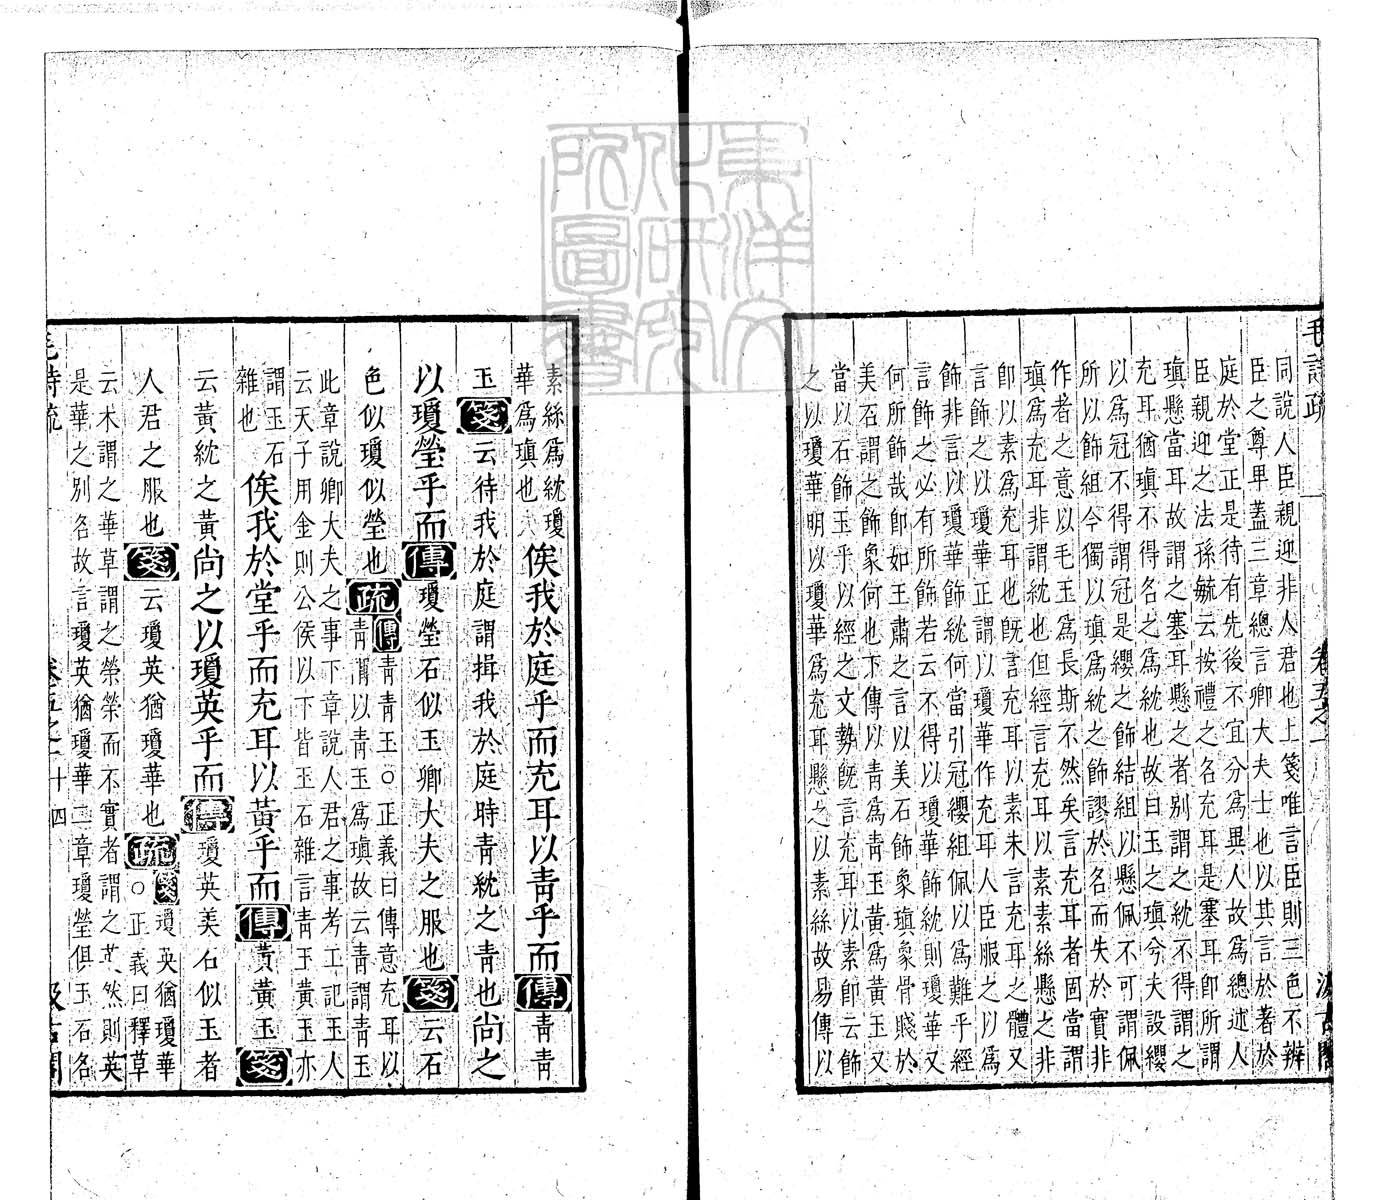 毛詩疏 卷五之一 汲古閣
同說人臣親迎非人君也上箋唯言臣則三色不辨
臣之尊卑蓋三章總言卿大夫士也以其言於著於
庭於堂正是待有先後不宜分為異人故為總述人
臣親迎之法孫毓云按禮之名充耳是塞耳即所謂
瑱懸當耳故謂之塞耳懸之者別謂之紞不得謂之
充耳猶瑱不得名之為紞也故曰玉之瑱兮夫設纓
以為冠不得謂冠是纓之飾結組以懸佩不可謂佩
所以飾組今獨以瑱為紞之飾謬於名而失於實非
作者之意以毛王為長斯不然矣言充耳者固當謂
瑱為充耳非謂紞也但經言充耳以素素絲懸之非
即以素為充耳也既言充耳以素未言充耳之體又
言飾之以瓊華正謂以瓊華作充耳人臣服之以為
飾非言以瓊華飾紞何當引冠纓組佩以為難乎經
言飾之必有所飾若云不得以瓊華飾紞則瓊華又
何所飾哉即如王肅之言以美石飾象瑱象骨賤於
美石謂之飾象何也下傳以青為青玉黃為黃玉又
當以石飾玉乎以經之文勢既言充耳以素即云飾
之以瓊華明以瓊華為充耳懸之以素絲故易傳以
素絲為紞瓊
華為瑱也
俟我於庭乎而充耳以青乎而傳青青
玉箋云待我於庭謂揖我於庭時青紞之青也尚之
以瓊瑩乎而傳瓊瑩石似玉卿大夫之服也箋云石
色似瓊似瑩也疏
傳青青玉○正義曰傳意充耳以
青謂以青玉為瑱故云青謂青玉
此章說卿大夫之事下章說人君之事考工記玉人
云天子用金則公侯以下皆玉石雜言青玉黃玉亦
謂玉石
雜也
俟我於堂乎而充耳以黃乎而傳黃黃玉箋
云黃紞之黃尚之以瓊英乎而傳瓊英美石似玉者
人君之服也箋云瓊英猶瓊華也疏
箋瓊英猶瓊華
也○正義曰釋草
云木謂之華草謂之榮榮而不實者謂之英然則英
是華之別名故言瓊英猶瓊華二章瓊瑩俱玉石名
毛詩疏 卷五之一 十四 汲古閣
東洋文化研究所圖書